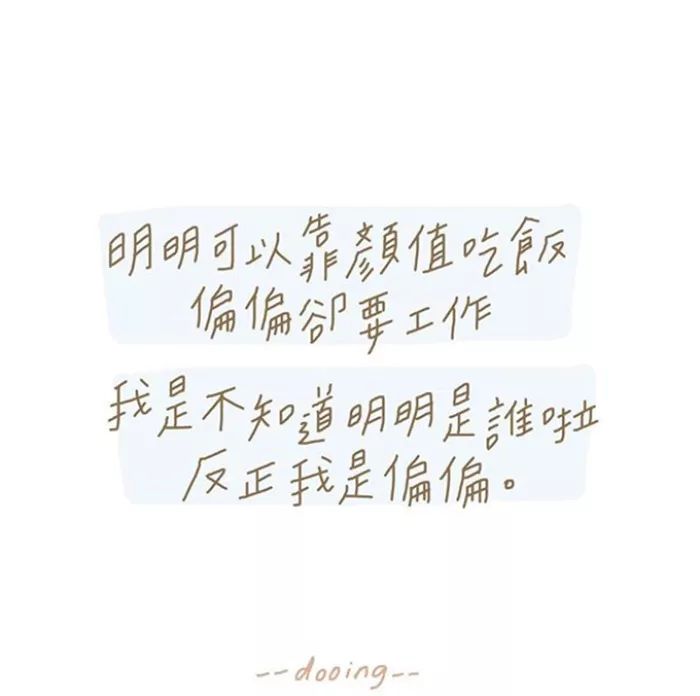 明明可以靠顏值吃飯
偏偏卻要工作
我是不知道明明是誰啦
反正我是偏偏。
--dooing--